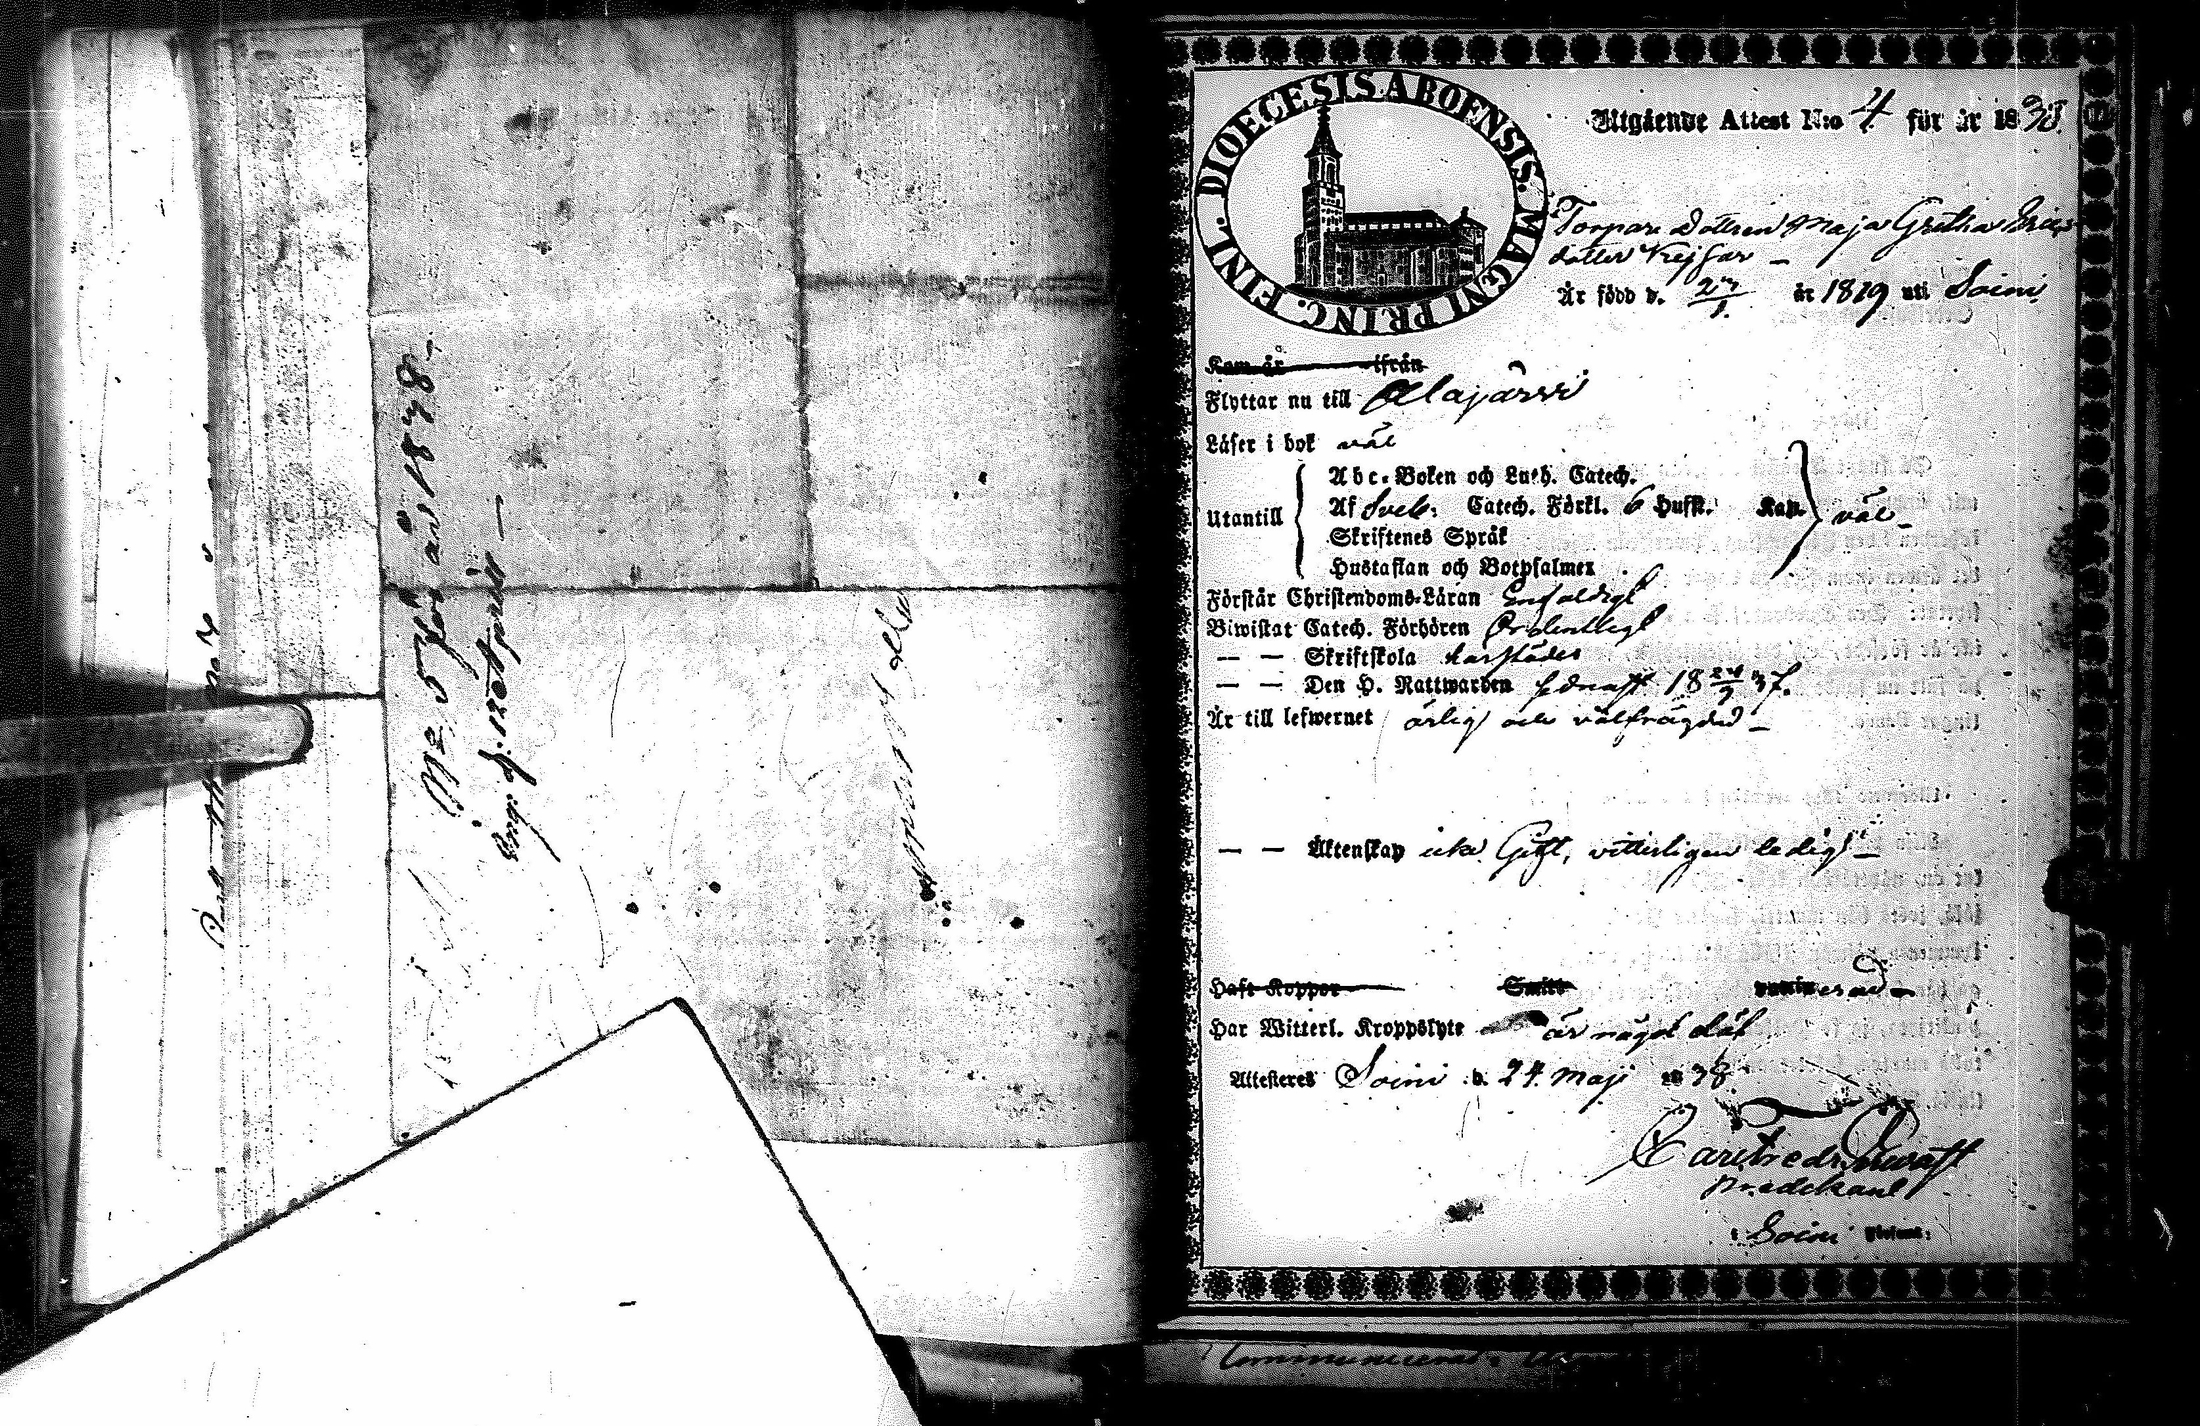 No 5 för år 1838
Ing. d. 12 April
DIOECESIS ABOENSIS. MAGNI PRINC. FINL.
Utgående Attest N:o 4 för år 1838.
Torpare Dottren Maja Gretha Erics
dotter Kejsar –
Är född d. 27/1. år 1819 uti Soini
Kom år ifrån
Flyttar nu till Alajärvi
Läser i bok väl
Utantill
Abc-Boken och Luth. Catech.
Af Sveb: Catech. Förkl. 6 Hufst. Kap. väl –
Skriftenes Språk
Hustaflan och Botpsalmer
Förstår Christendoms-Läran Enfaldigt
Biwistat Catech. Förhören Ordentligt
— — Skriftskola
— — Den H. Nattwarden 18 24/7 37.
Är till lefwernet ärlig och välfrägdad –
— — Äktenskap icke Gift, vitterligen ledig –
Haft Koppor Smitt vaccinerad
Har Witterl. Kroppslyte är något döf
Attesteras Soini d. 24 Maji 1838
Predikant
i Soini